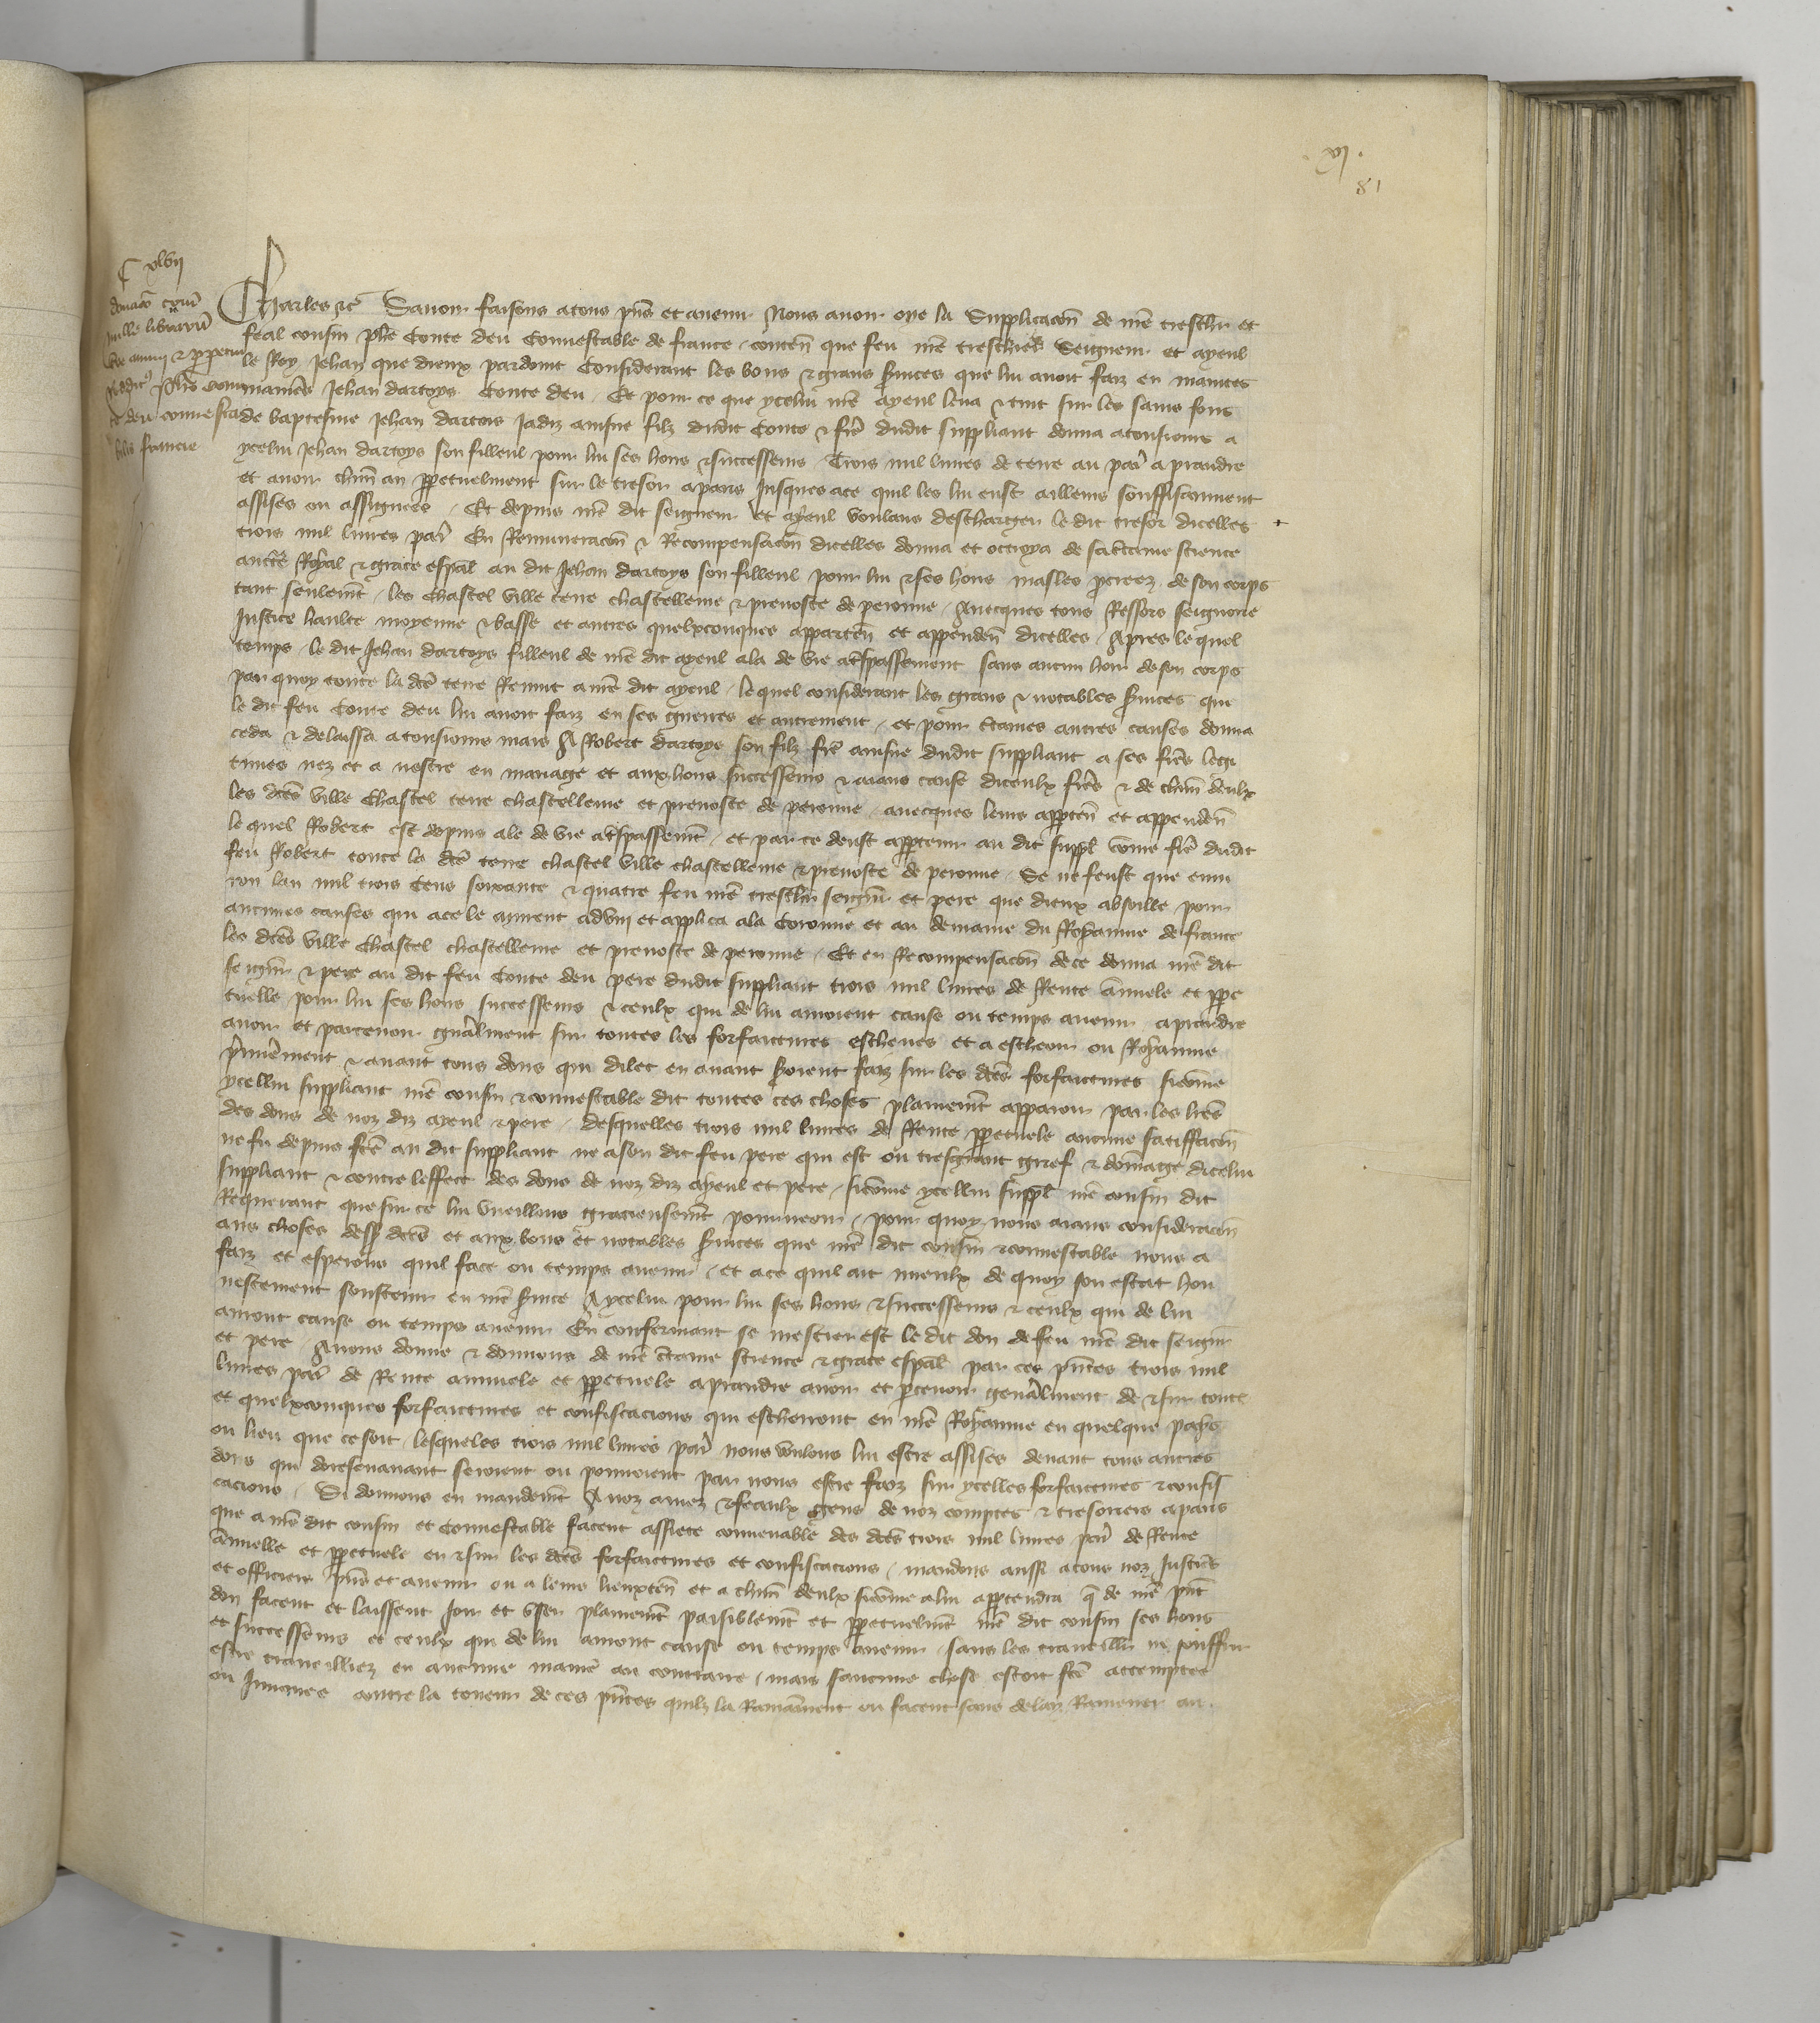 81
C xlvii
donacio trium
mille librarum
Charles etc Savoir faisons a tous pns et avenir Nous avoir oye la Supplicacon de nre treschr et
feal cousin phe Conte deu Connestable de france, conten que feu nre treschier Seigneur et ayeul
le Roy Jehan que dieux pardoint Considerant les bons & grans svices que lui avoit faiz en maintes
manieres Jehan dartoys Conte deu, Et pour ce que ycelui nre ayeul leva & tint sur les sains fons
te deu connesta de baptesme Jehan dartois Jadiz ainsne filz dudit Conte & fre dudit suppliant donna a tousjours a
bili francie
ycelui Jehan dartoys son filleul pour lui ses hoirs & successeurs Trois mil livres de terre au par a prandre
et avoir chun an ppetuelment sur le tresor a paris Jusques ace quil les lui eust ailleurs souffisamment
assises ou assignees, Et depuis nre dit seigneur et ayeul voulans deschargier le dit tresor dicelles
trois mil livres par En Remuneracon & Recompensacon dicelles donna et octroya de sa ctaine science
aucte Royal & grace espal au dit Jehan dartoys son filleul pour lui & ses hoirs masles procreez de son corps
tant seulemt, les Chastel ville terre chastellenie & prevoste de peronne, Avecques tous Ressors seignorie
Justice haulte moyenne & basse et autres quelxconques apparten et appenden dicelles, Apres le quel
temps le dit Jehan dartoys filleul de nre dit ayeul ala de vie a tspassement sans aucun hoir de son corps
par quoy toute la dce terre Revint a nre dit ayeul, le quel considerant les grans & notables svices que
le dit feu Conte deu lui avoit faiz en ses guerres et autrement, et pour ctaines autres causes donna
ceda & delaissa a tousjours mais A Robert dartoys son filz fre ainsne dudit suppliant a ses fres legi
times nez et a nestre en mariage et aux hoirs successeurs & aians cause diceulx fres & de chun deulx
les dces ville Chastel terre chastellenie et prevoste de peronne, avecques leurs apprten et appenden
le quel Robert est depuis ale de vie a tspassemt, et par ce deust apprtenir au dit suppl come fre dudit
feu Robert toute la dce terre chastel ville chastellenie & prevoste de peronne, Se ne feust que envi
ron lan mil trois cens soixante & quatre feu nre treschr seignr et pere que dieux absoille pour
aucunes causes qui ace le murent advni et applica ala Coronne et au demaine du Royaume de france
les dces ville Chastel chastellenie et prevoste de peronne, Et en Recompensacon de ce donna nre dit
seignr & pere au dit feu Conte deu pere dudit suppliant trois mil livres de Rente annuele et ppe
tuelle pour lui ses hoirs successeurs & ceulx qui de lui auroient cause ou temps avenir a prandre
avoir et parcevoir gnalment sur toutes les forfaictures escheues et a escheoir ou Royaume
primerement & avant tous dons qui dilec en avant seroient faiz sur les dces forfaictures sicome
ycellui suppliant nre cousin & connestable dit toutes ces choses plainemt apparoir par les lres
des dons de noz diz ayeul & pere, Desquelles trois mil livres de Rente ppetuele aucune satiffacon
ne fu depuis fce au dit suppliant ne a son dit feu pere qui est ou tresgrant grief & domage dicelui
suppliant & contre leffect des dons de noz diz ayeul et pere, sicome ycellui suppl nre cousin dit
Requerant que sur ce lui vueillons gracieusemt pourveoir, pour quoy nous aians consideracon
aus choses dess dces et aux bons et notables svices que nre dit cousin & connestable nous a
faiz et esperons quil face ou temps avenir, et ace quil ait mieulx de quoy son estat hon
nestement soustenir en nre svice A ycelui pour lui ses hoirs & successeurs & ceulx qui de lui
auront cause ou temps avenir En confermant se mestier est le dit don de feu nre dit seignr
et pere Avons donne & donnons de nre ctaine science & grace espal par ces pntes trois mil
livres par de Rente annuele et ppetuele a prandre avoir et prcevoir genalment de & sur toute
et quelxconques forfaictures et confiscacions qui escherront en nre Royaume en quelque pahs
ou lieu que ce soit, lesqueles trois mil livres par nous voulons lui estre assises devant tous autres
dons qui doresenavant seroient ou pourroient par nous estre faiz sur ycelles forfaictures & confis
cacions, Si donnons en mandemt A noz amez & feaulx gens de noz comptes & tresoriers a paris
que a nre dit cousin et Connestable facent assiete convenable des dces trois mil livres par de Rente
annuelle et ppetuele en & sur les dces forfaictures et confiscacions, mandons aussi a tous noz Justics
et officiers pns et avenir ou a leurs lieuxten et a chun deulx sicome a lui apprtendra q de nre pnt
don facent et laissent Joir et vser plainemt paisiblemt et ppetuelmt nre dit cousin ses hoirs
et successeurs et ceulx qui de lui auront cause ou temps avenir, sans les traveillir ne souffrir
estre traveilliez en aucune manie au contraire, mais saucune chose estoit fce attemptee
ou Innovee contre la teneur de ces pntes quilz la Ramainent ou facent sans delay Ramener au